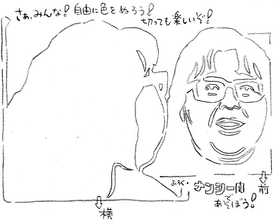 さぁ、みんな！自由に色をぬろう！
切っても楽しいぞ！
ふろく
ナンシー関
で
あそぼう！
横
前